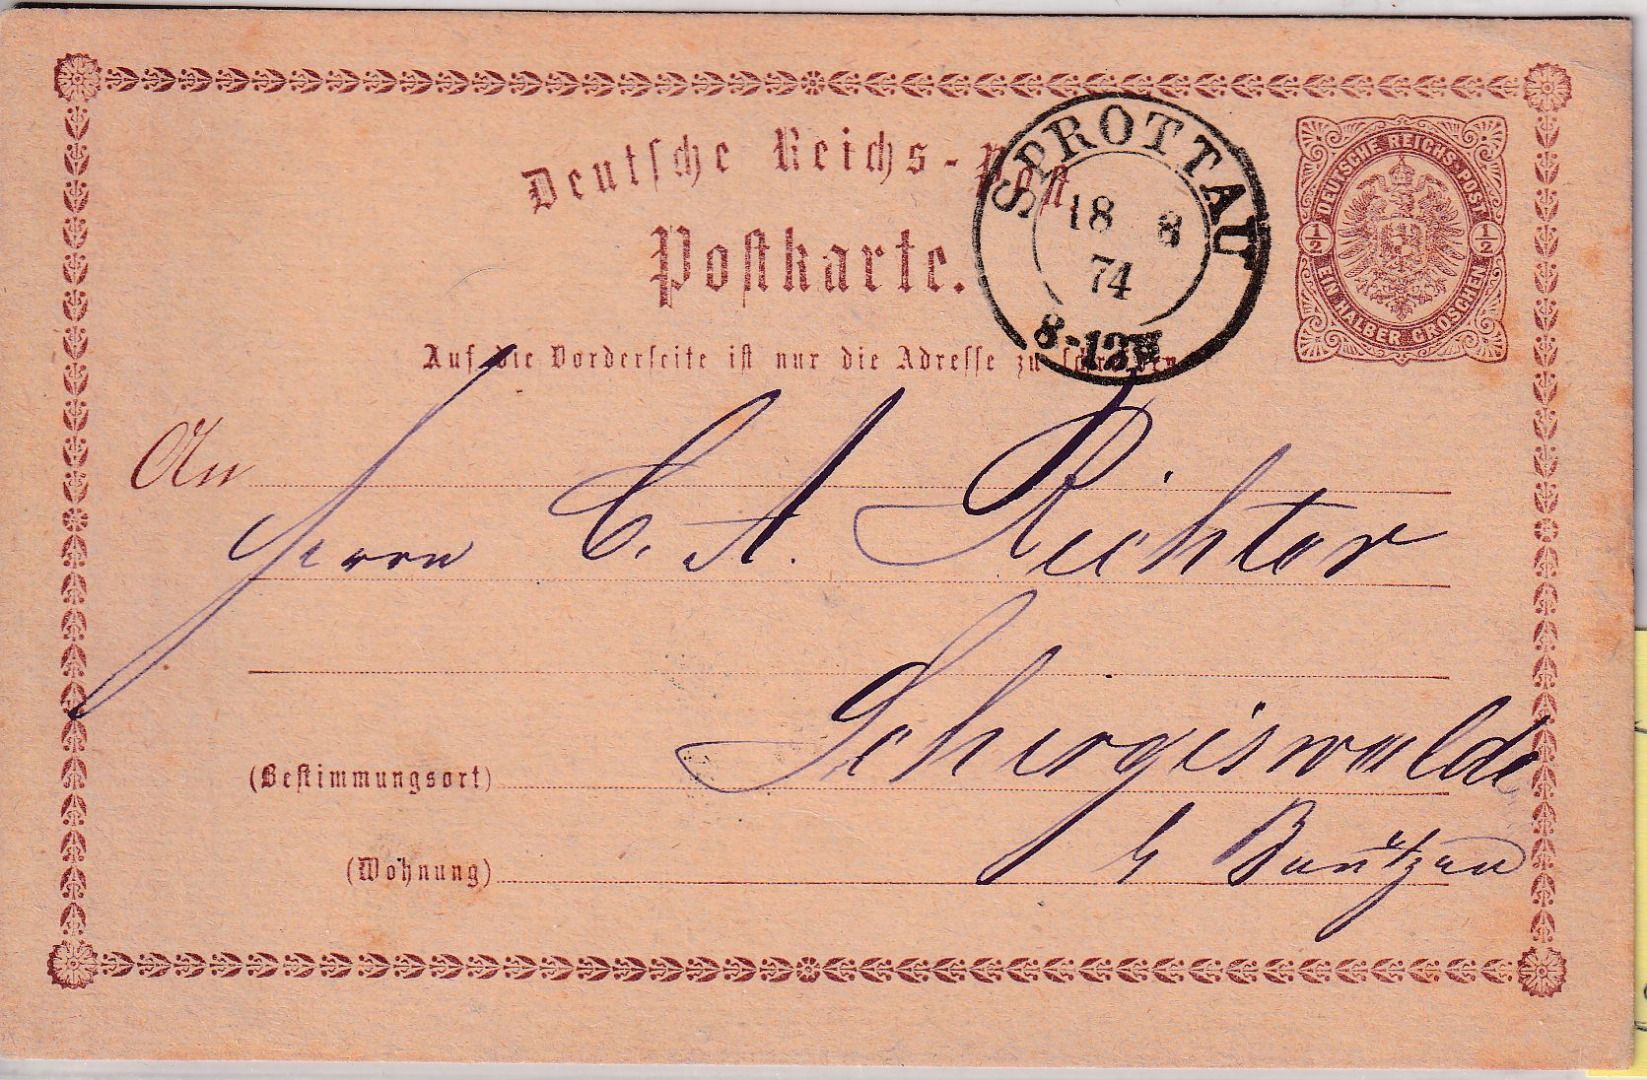 Deutsche Reichs-Post.
Postkarte.
Auf die Vorderseite ist nur die Adresse zu schreiben.
SPROTTAU
18 8
74
8-12V
DEUTSCHE REICHS-POST
1/2 1/2
EIN HALBER GROSCHEN
An
Herrn C. A. Richter
(Bestimmungsort) Schirgiswalde
(Wohnung) b Bautzen